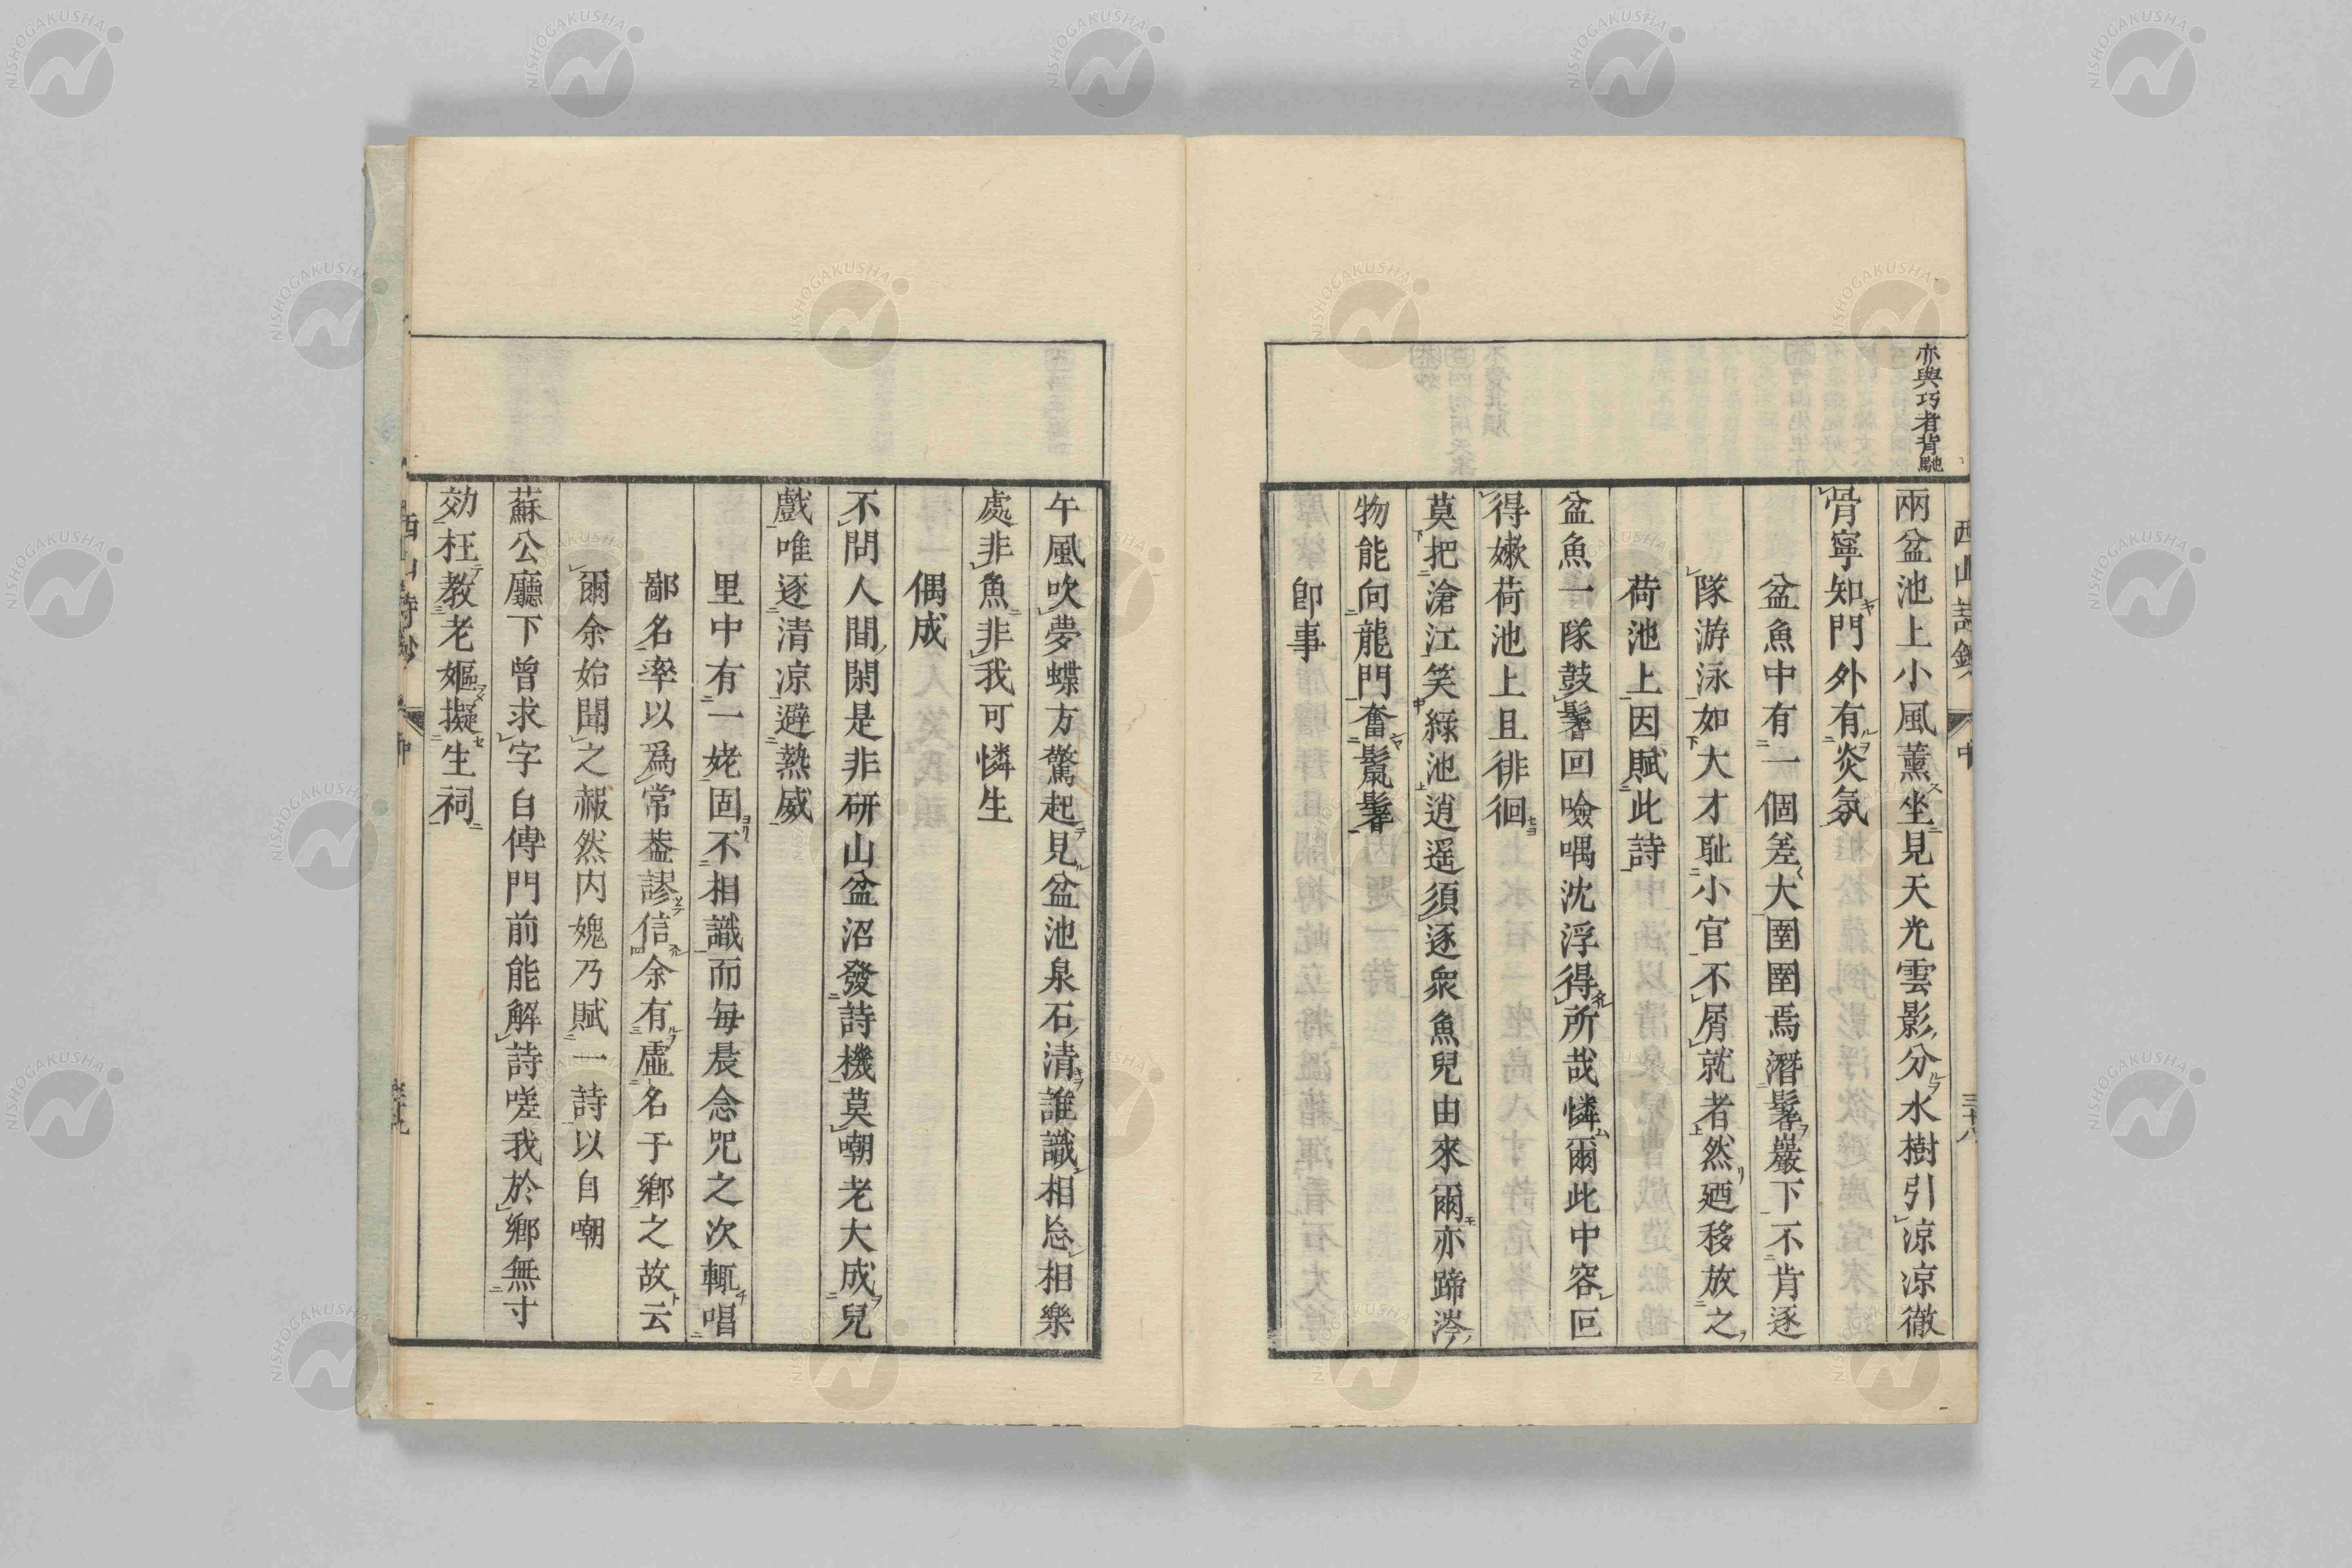 亦與巧者背馳
兩盆池上小風薰坐見天光雲影分水樹引涼涼徹
骨寧知門外有炎氛
盆魚中有一個差大圉圉焉潛鬐巖下不肯逐
隊游泳如大才耻小官不屑就者然廼移放之
荷池上因賦此詩
盆魚一隊鼓鬐回噞喁沈浮得所哉憐爾此中容叵
得嫰荷池上且徘徊
莫把滄江笑綠池逍遥須逐衆魚兒由來爾亦蹄涔
物能向龍門奮鬣鬐
卽事
午風吹夢蝶方驚起見盆池泉石清誰識相忘相樂
處非魚非我可憐生
偶成
不問人間閑是非研山盆沼發詩機莫嘲老大成兒
戲唯逐清凉避熱威
里中有一姥固不相識而每晨念咒之次輒唱
鄙名率以爲常葢謬信余有虛名于鄉之故云
爾余始聞之赧然内媿乃賦一詩以自嘲
蘇公廳下曾求字白傅門前能解詩嗟我於鄉無寸
効枉教老嫗擬生祠
西山詩鈔 中 三十八
西山詩鈔 中
NISHOGAKUSHA